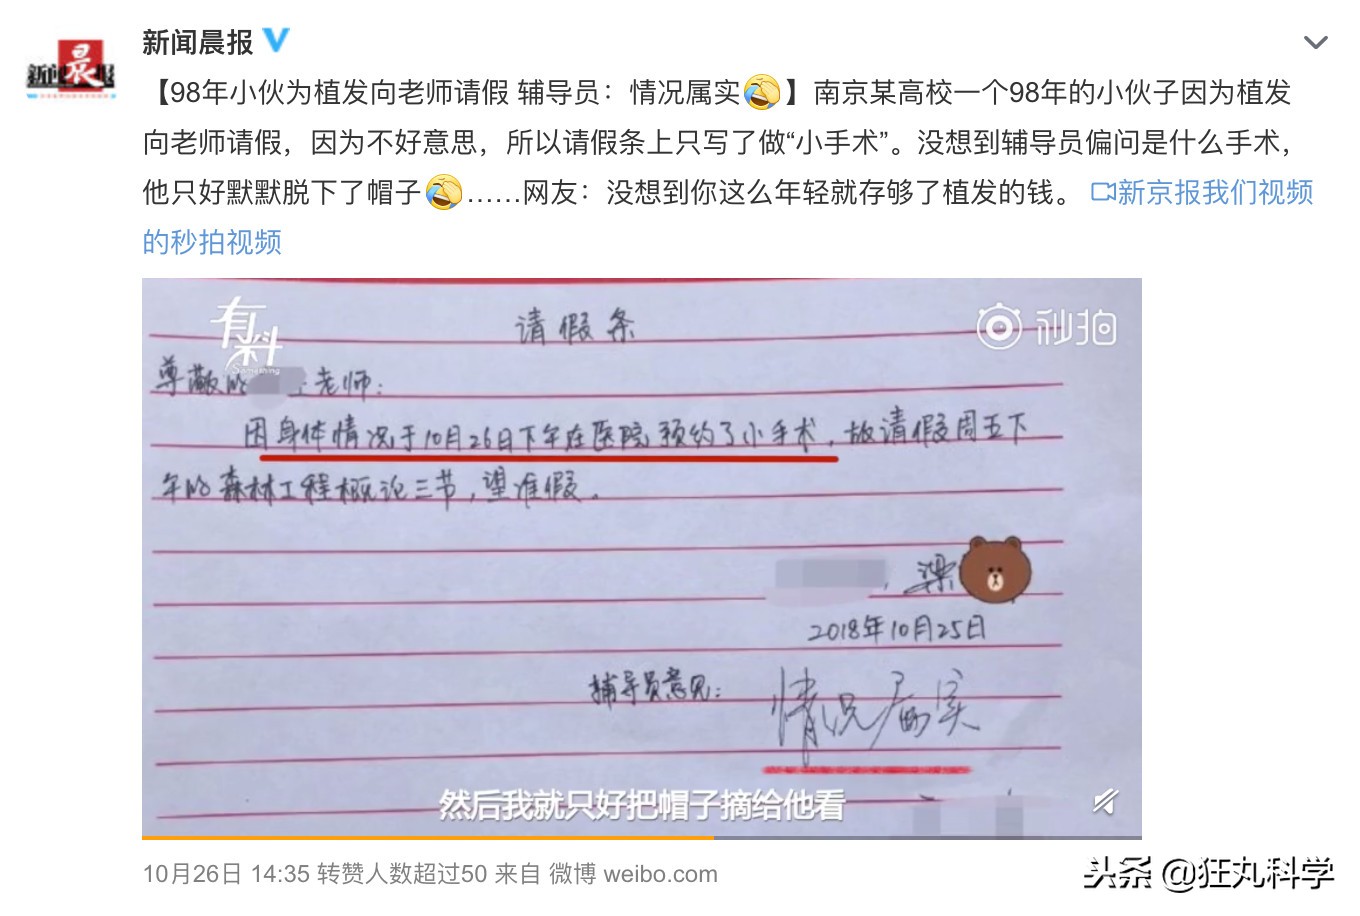 新闻晨报
新闻晨报
【98年小伙为植发向老师请假 辅导员：情况属实】南京某高校一个98年的小伙子因为植发
向老师请假，因为不好意思，所以请假条上只写了做“小手术”。没想到辅导员偏问是什么手术，
他只好默默脱下了帽子……网友：没想到你这么年轻就存够了植发的钱。 新京报我们视频
的秒拍视频
有料
Something
请假条
秒拍
尊敬的 老师：
因身体情况于10月26日下午在医院预约了小手术，故请假周五下
午的森林工程概论三节，望准假。
梁
2018年10月25日
辅导员意见：
情况属实
然后我就只好把帽子摘给他看
10月26日 14:35 转赞人数超过50 来自 微博 weibo.com
头条 @狂丸科学